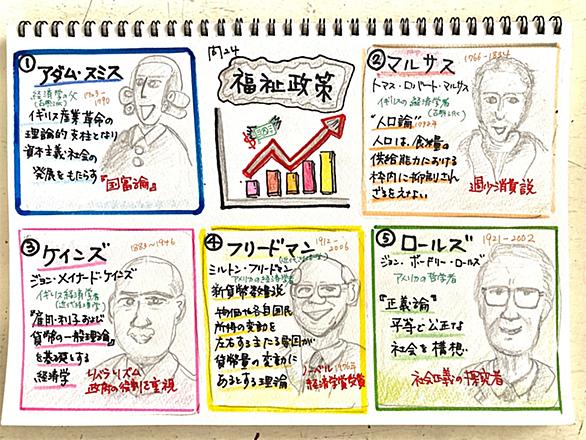 ① アダム・スミス
経済学の父
1723~
1790
(古典派)
イギリス産業革命の
理論的支柱となり
資本主義社会の
発展をもたらす
『国富論』
問24
福祉政策
② マルサス
1766-1834
トマス・ロバート・マルサス
イギリスの経済学者
(古典派)
"人口論"
人口は、食糧の
供給能力における
枠内に抑制され
ざるをえない
過少消費説
③ ケインズ
1883~1946
ジョン・メイナード・ケインズ
イギリス経済学者
(近代経済学)
『雇用・利子および
貨幣の一般理論』
を基礎とする
経済学
リベラリズム
政府の役割を重視
④ フリードマン
1912~
2006
(近代経済学)
ミルトン・フリードマン
アメリカの経済学者
新貨幣数量説
物価や名目国民
所得の変動を
左右する主たる要因が
貨幣量の変動に
あるとする理論
ノーベル 1976年
経済学賞受賞
⑤ ロールズ
1921-2002
ジョン・ボードリー・ロールズ
アメリカの哲学者
『正義論』
平等と公正な
社会を構想
社会正義の探究者